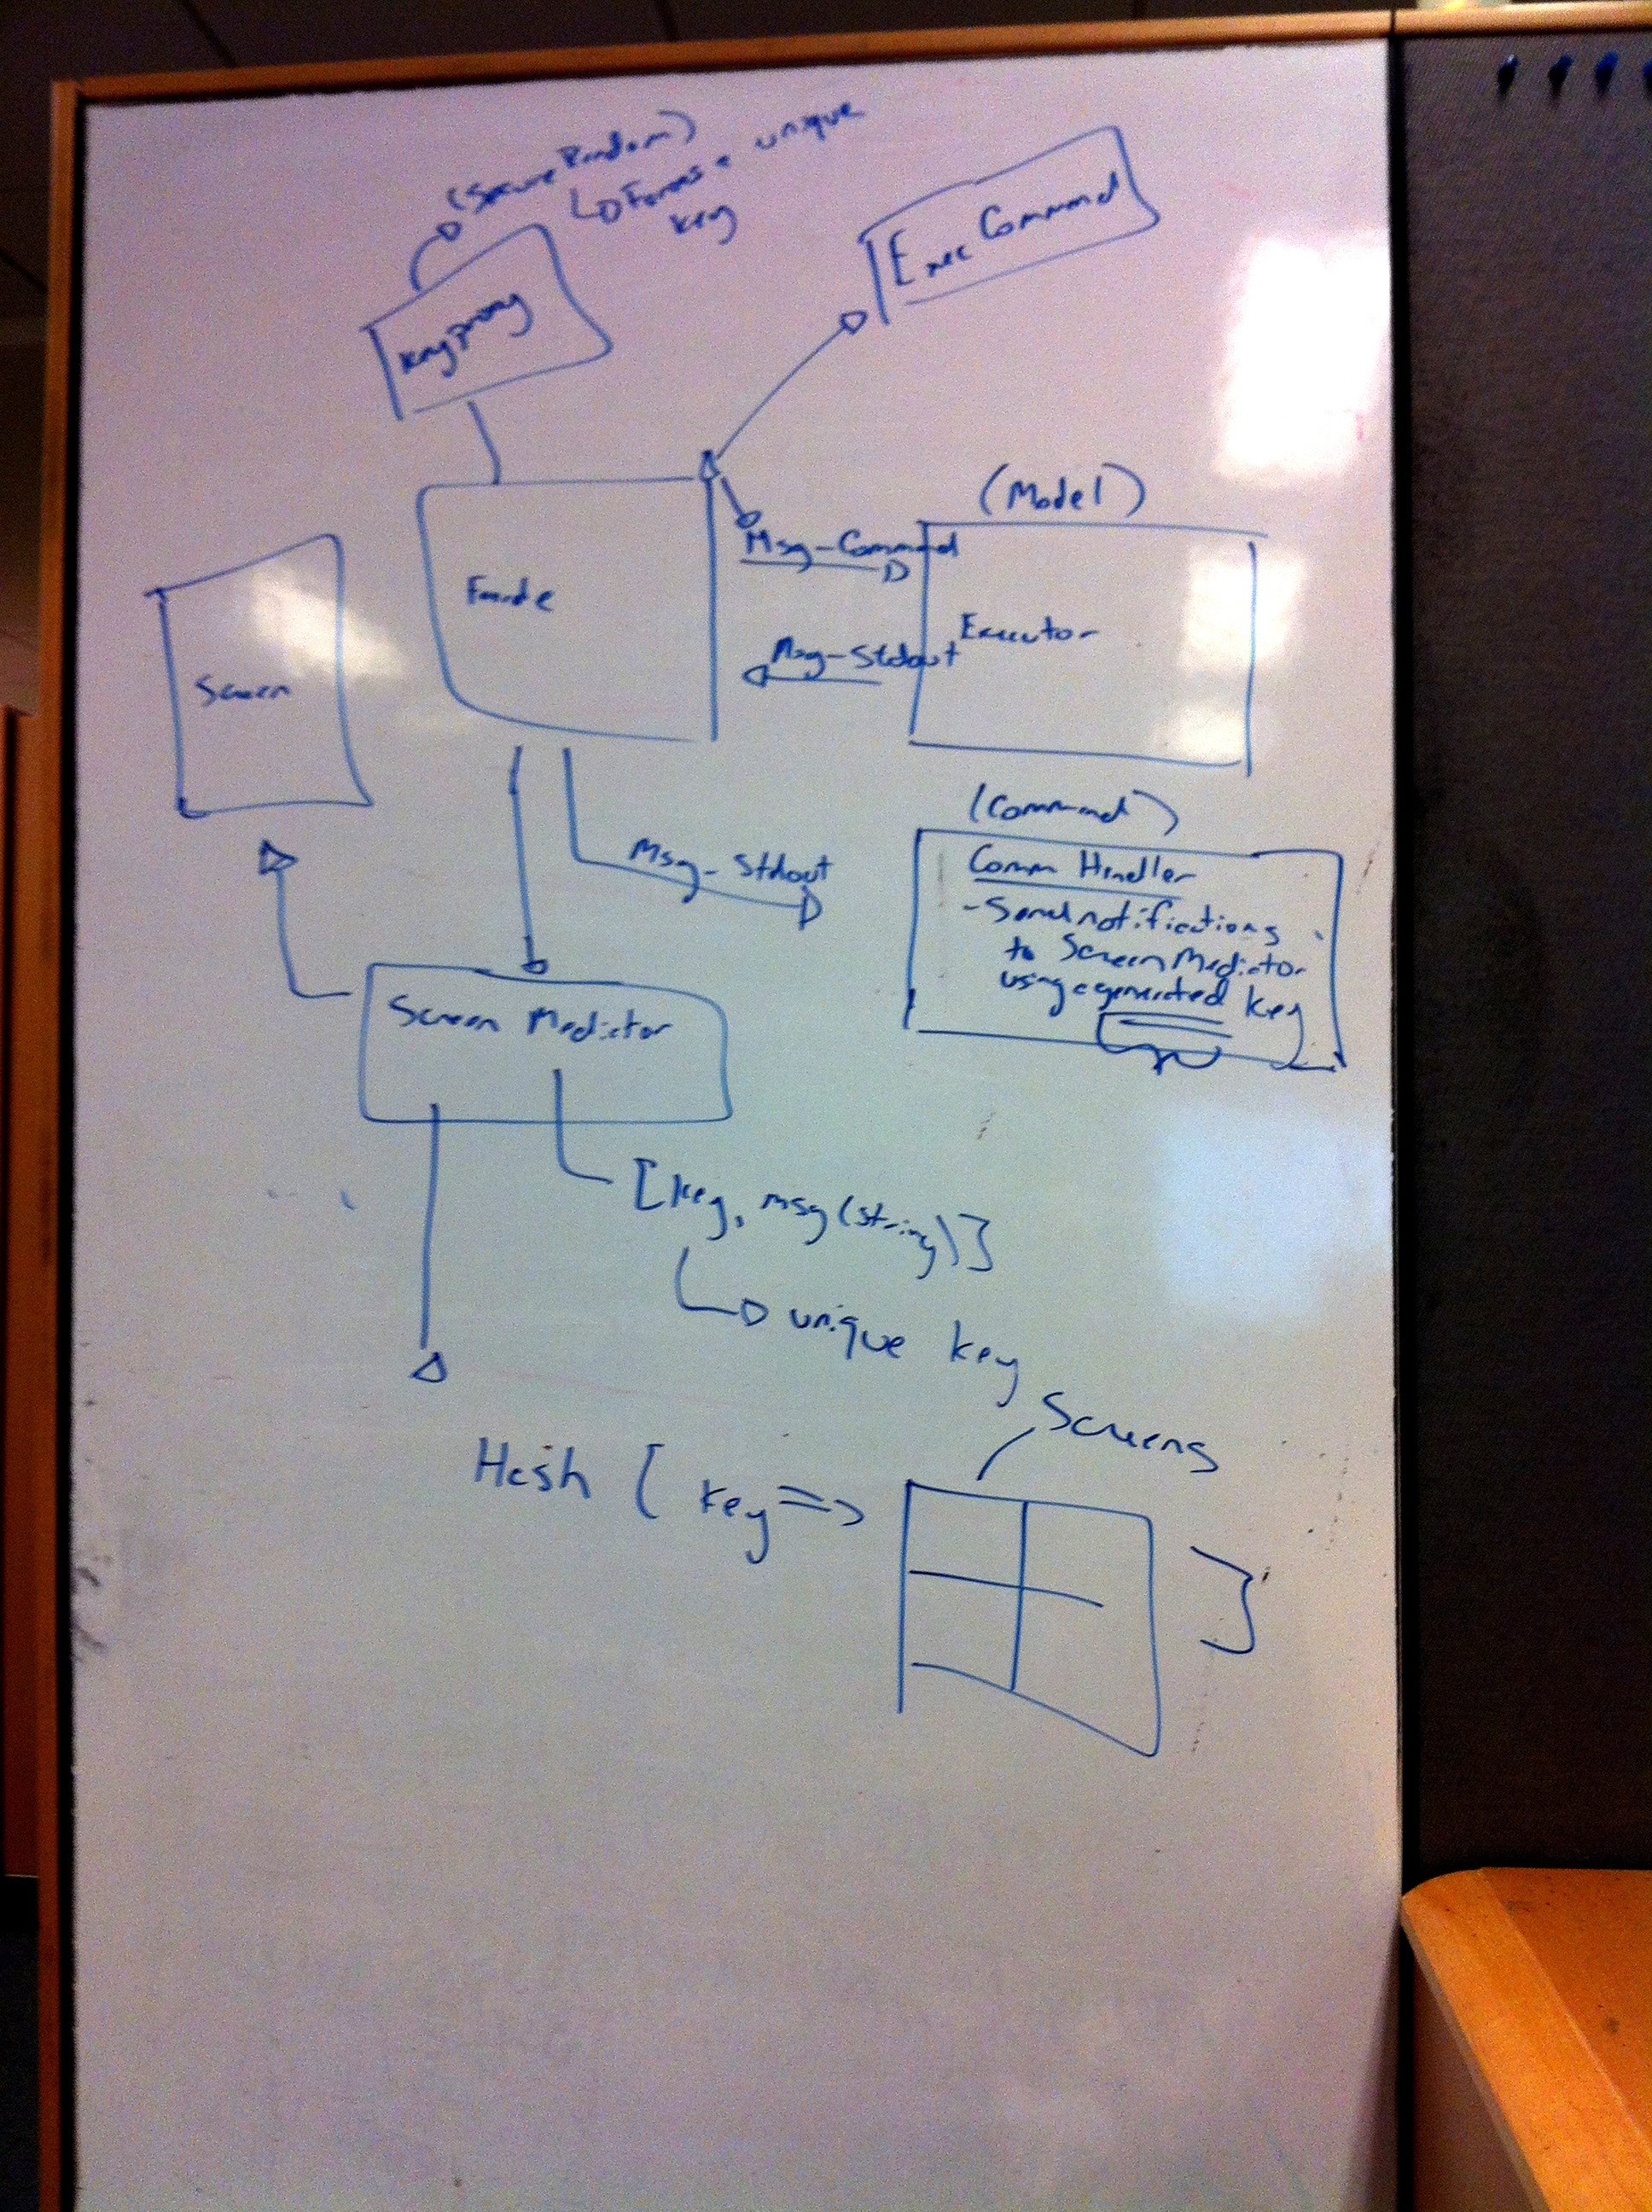 (Secure Random)
Forms a unique
key
Exec Command
KeyProxy
(Model)
Msg-Command
Facade
Executor
Msg-Stdout
Screen
(Command)
Msg-Stdout
Comm Handler
- Send notifications
to Screen Mediator
using a generated key
Screen Mediator
[key, msg(string)]
unique key
Screens
Hash [ key => ]